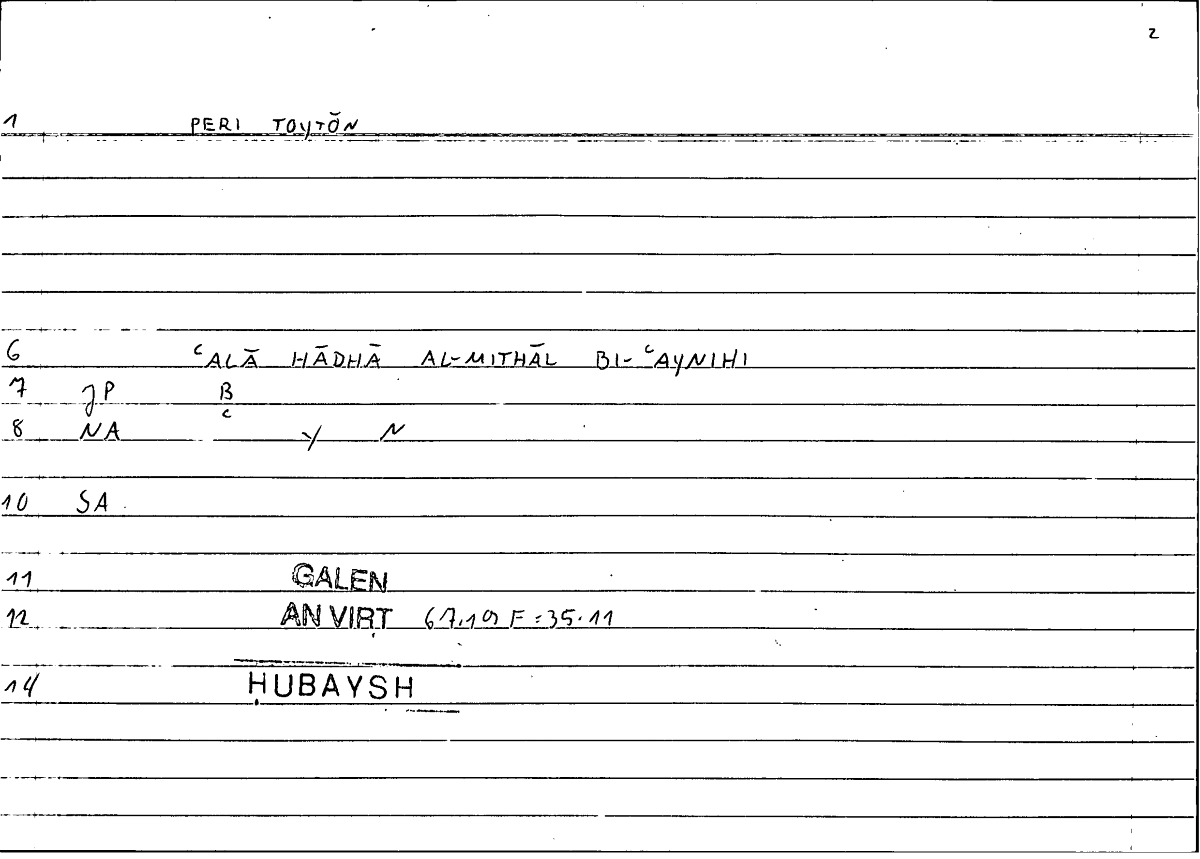 2
1 PERI TOYTŌN
6 ʿALĀ HĀDHĀ AL-MITHĀL BI-ʿAYNIHI
7 JP B
8 NA ʿ Y N
10 SA
11 GALEN
12 AN VIRT 67.19 F = 35.11
14 ḤUBAYSH